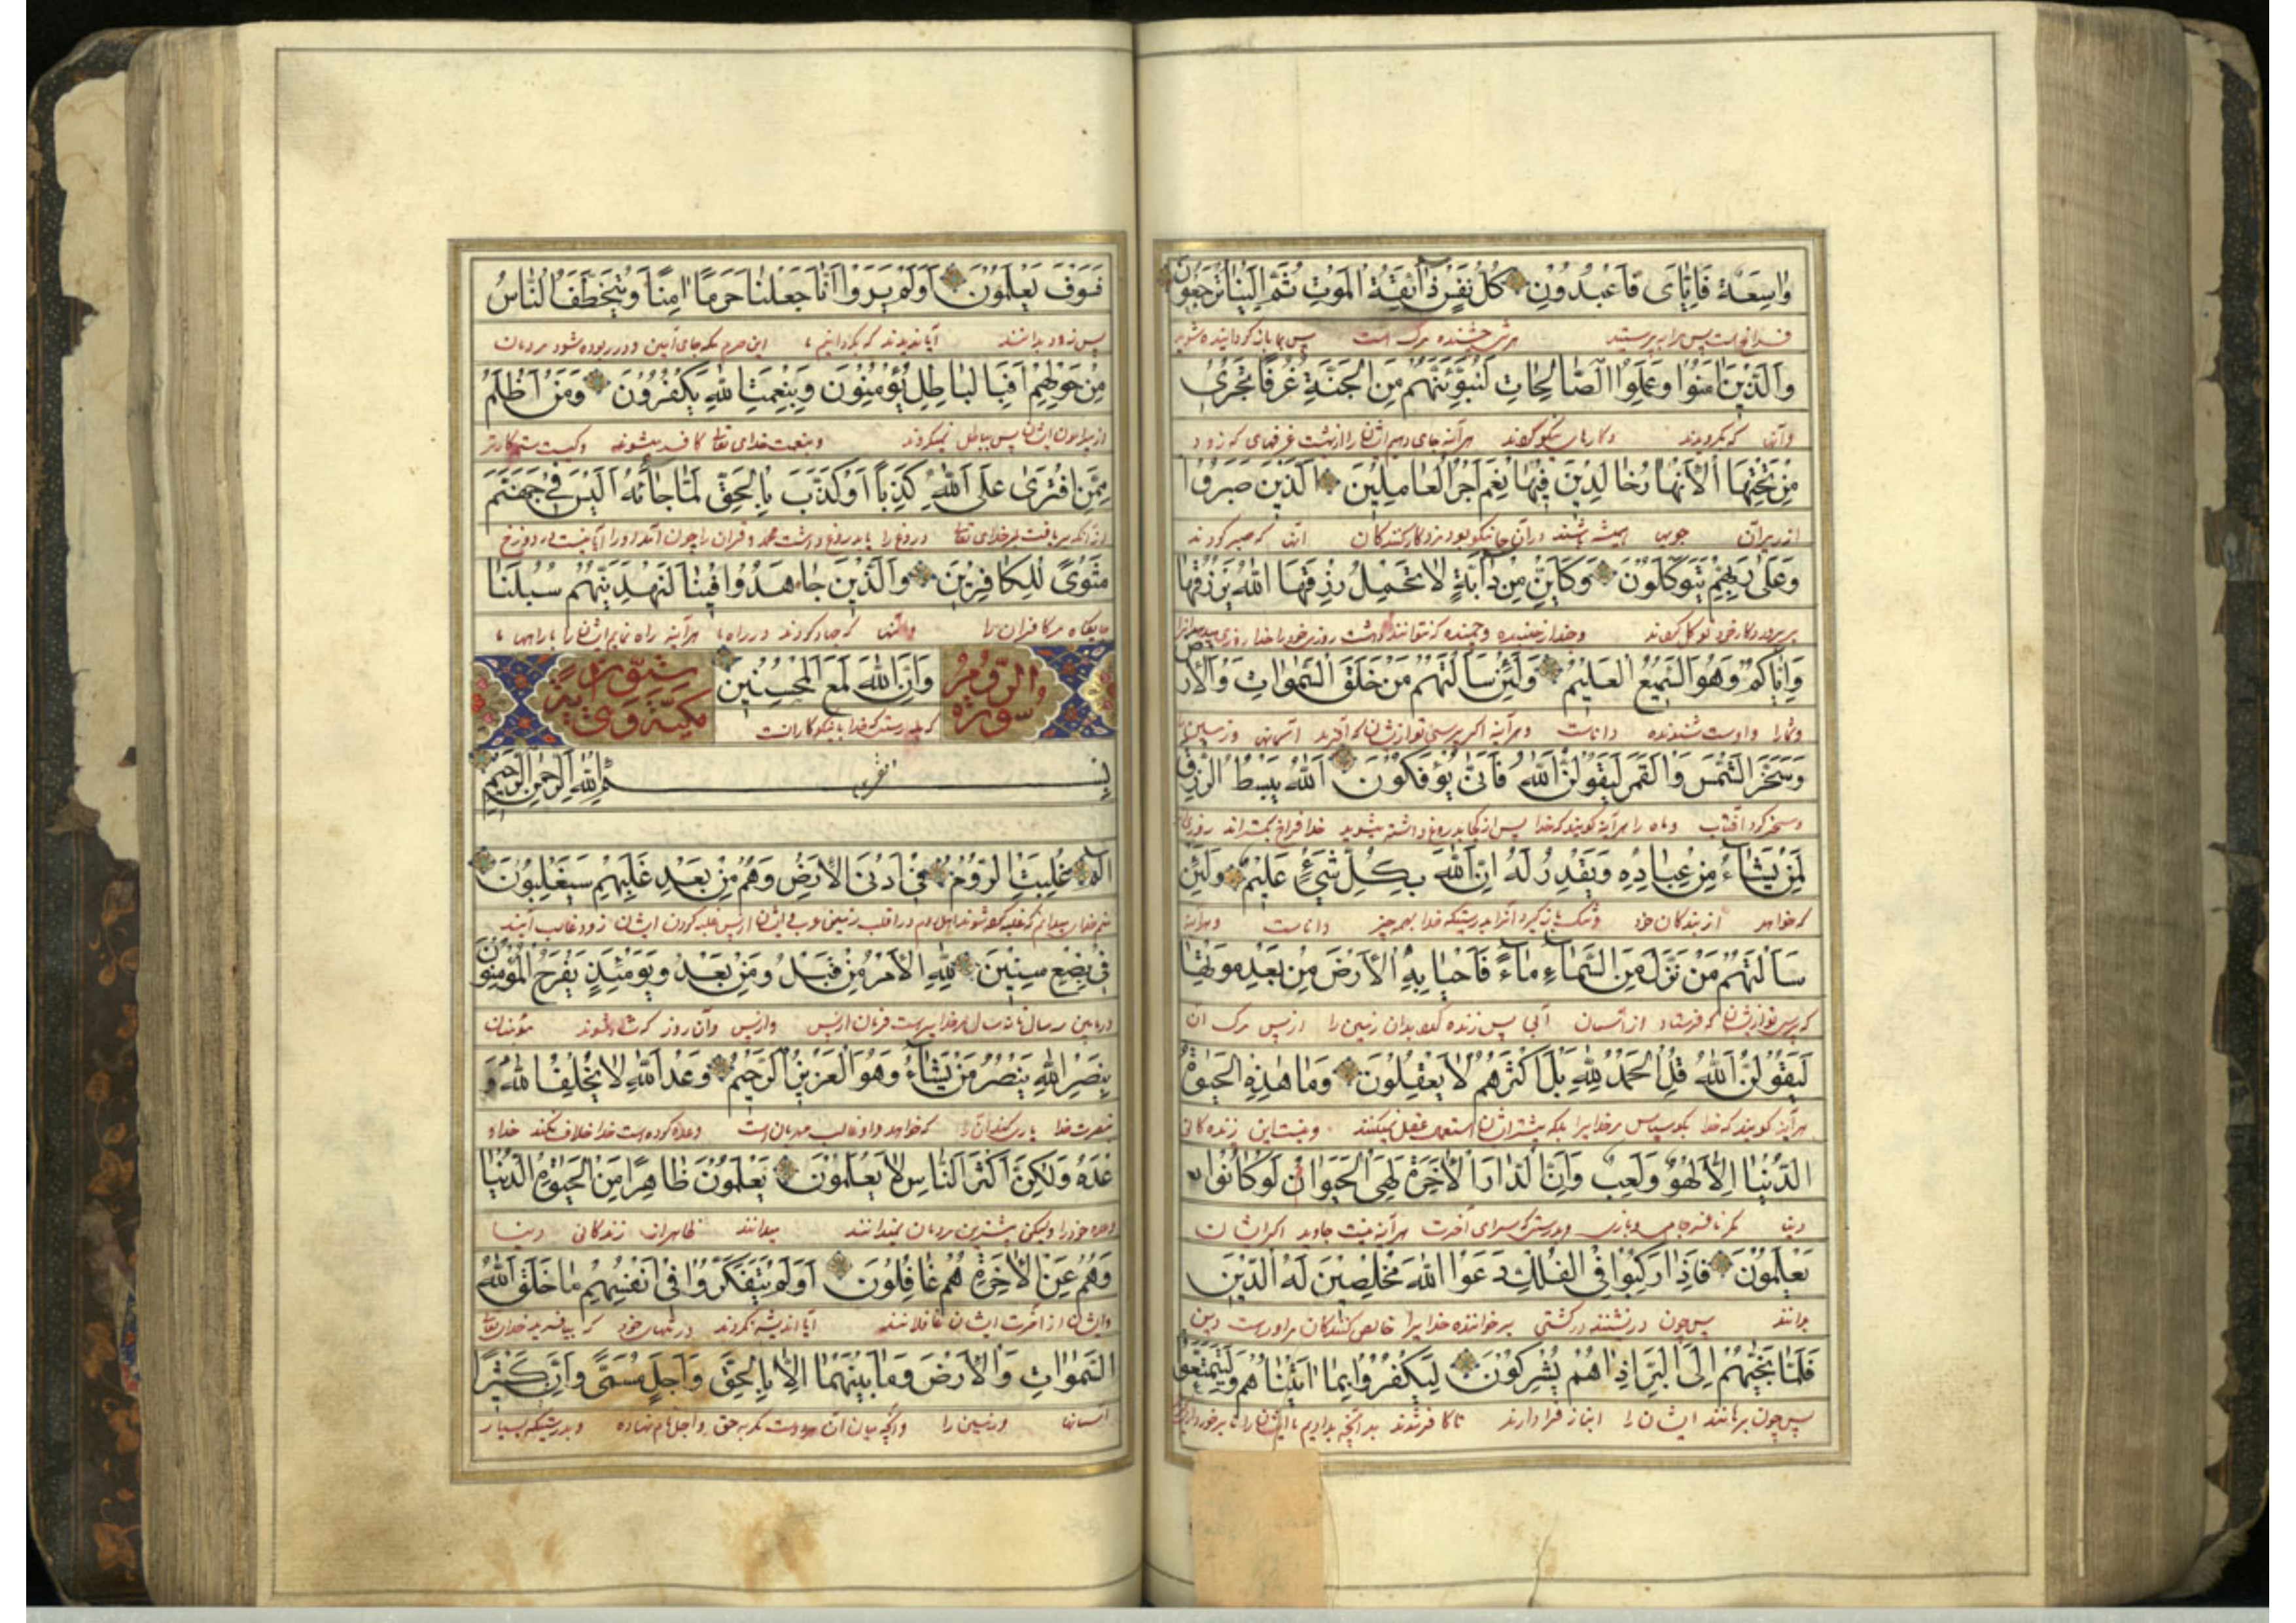 وَاسِعَةٌ فَإِيَّايَ فَاعْبُدُونِ كُلُّ نَفْسٍ ذَآئِقَةُ الْمَوْتِ ثُمَّ إِلَيْنَا تُرْجَعُونَ
فراخ است پس مرا بپرستید هر تن چشنده مرگ است پس بما بازگردانیده شوید
وَالَّذِينَ اٰمَنُوا وَعَمِلُوا الصَّالِحَاتِ لَنُبَوِّئَنَّهُمْ مِنَ الْجَنَّةِ غُرَفًا تَجْرِي
وآنها که بگرویدند وکارهای نیکو کردند هرآینه جای دهیم ایشانرا از بهشت غرفهای که رود
مِنْ تَحْتِهَا الْأَنْهَارُ خَالِدِينَ فِيهَا نِعْمَ أَجْرُ الْعَامِلِينَ الَّذِينَ صَبَرُوا
از زیر آن جویها همیشه باشند در آن جا نیکو بود مزد کارکنندگان آنها که صبر کردند
وَعَلَىٰ رَبِّهِمْ يَتَوَكَّلُونَ وَكَأَيِّنْ مِنْ دَآبَّةٍ لَا تَحْمِلُ رِزْقَهَا اللّٰهُ يَرْزُقُهَا
بر پروردکار خود توکل کردند وچند از جنبنده که نتوانند داشت روزی خود را خدا روزی
وَإِيَّاكُمْ وَهُوَ السَّمِيعُ الْعَلِيمُ وَلَئِنْ سَأَلْتَهُمْ مَنْ خَلَقَ السَّمٰوَاتِ وَالْأَرْضَ
وشما را واوست شنونده داناست وهرآینه اکر پرسی تو از ایشان که آفرید آسمانها وزمین
وَسَخَّرَ الشَّمْسَ وَالْقَمَرَ لَيَقُولُنَّ اللّٰهُ فَأَنَّىٰ يُؤْفَكُونَ اللّٰهُ يَبْسُطُ الرِّزْقَ
ومسخر کرد آفتاب وماه را هرآینه گویند که خدا پس از کجا بدروغ داشته میشوید خدا فراخ بکستراند روزی
لِمَنْ يَشَآءُ مِنْ عِبَادِهِ وَيَقْدِرُ لَهُ إِنَّ اللّٰهَ بِكُلِّ شَيْءٍ عَلِيمٌ وَلَئِنْ
که خواهد از بندکان خود وتنک بازگیرد آنرا بدرستیکه خدا بهمه چیز داناست وهرآینه
سَأَلْتَهُمْ مَنْ نَزَّلَ مِنَ السَّمَآءِ مَآءً فَأَحْيَا بِهِ الْأَرْضَ مِنْ بَعْدِ مَوْتِهَا
که پرسی تو از ایشان که فرستاد از آسمان آبی پس زنده کند بدان زمین را از پس مرگ آن
لَيَقُولُنَّ اللّٰهُ قُلِ الْحَمْدُ لِلّٰهِ بَلْ أَكْثَرُهُمْ لَا يَعْقِلُونَ وَمَا هٰذِهِ الْحَيٰوةُ
هرآینه گویند که خدا بگو سپاس مر خدایرا بلکه بیشتر ایشان استعمال عقل نمیکنند ونیست این زنده کانی
الدُّنْيَا إِلَّا لَهْوٌ وَلَعِبٌ وَإِنَّ الدَّارَ الْأٰخِرَةَ لَهِيَ الْحَيَوَانُ لَوْ كَانُوا
دنیا مگر وبازی وبدرستیکه سرای آخرت هرآینه جاوید اکر ایشان
يَعْلَمُونَ فَإِذَا رَكِبُوا فِي الْفُلْكِ دَعَوُا اللّٰهَ مُخْلِصِينَ لَهُ الدِّينَ
بدانند پس چون درنشینند در کشتی بخوانند خدایرا خالص کنندکان مر اوراست دین
فَلَمَّا نَجَّيٰهُمْ إِلَى الْبَرِّ إِذَا هُمْ يُشْرِكُونَ لِيَكْفُرُوا بِمَا اٰتَيْنَاهُمْ وَلِيَتَمَتَّعُوا
پس چون برهانند ایشان را انباز فرا دارند تا کافر شدند بدانچه بدادیم ایشان را تا
فَسَوْفَ يَعْلَمُونَ أَوَلَمْ يَرَوْا أَنَّا جَعَلْنَا حَرَمًا اٰمِنًا وَيُتَخَطَّفُ النَّاسُ
پس زود بدانند آیا ندیدند که بکردانیم ما این حرم مکه جای امن ودر ربوده شود مردمان
مِنْ حَوْلِهِمْ أَفَبِالْبَاطِلِ يُؤْمِنُونَ وَبِنِعْمَةِ اللّٰهِ يَكْفُرُونَ وَمَنْ أَظْلَمُ
از پیرامون ایشان پس بباطل میگروند وبنعمت خدای تعالی کافر میشوند وکیست ستمکارتر
مِمَّنِ افْتَرَىٰ عَلَى اللّٰهِ كَذِبًا أَوْ كَذَّبَ بِالْحَقِّ لَمَّا جَآءَهُ أَلَيْسَ فِي جَهَنَّمَ
از آنکه بربافت بر خدای تعالی دروغ را یا بدروغ داشت محمد وقرآن را چون آمد اورا آیا نیست در دوزخ
مَثْوًى لِلْكَافِرِينَ وَالَّذِينَ جَاهَدُوا فِينَا لَنَهْدِيَنَّهُمْ سُبُلَنَا
جایکاه مر کافران را وآنها که جهاد کردند در راه ما هرآینه راه نمایم ایشان را براهها ما
سورة الروم وَإِنَّ اللّٰهَ لَمَعَ الْمُحْسِنِينَ ستون آية مكية وهي
که بدرستیکه خدا با نیکوکارانست
بِسْمِ اللّٰهِ الرَّحْمٰنِ الرَّحِيمِ
الٓمٓ غُلِبَتِ الرُّومُ فِي أَدْنَى الْأَرْضِ وَهُمْ مِنْ بَعْدِ غَلَبِهِمْ سَيَغْلِبُونَ
منم خدای میدانم که غلبه کرده شوند اهل روم در اقلب زمین عرب وایشان از پس غلبه کردن ایشان زود غالب آیند
فِي بِضْعِ سِنِينَ لِلّٰهِ الْأَمْرُ مِنْ قَبْلُ وَمِنْ بَعْدُ وَيَوْمَئِذٍ يَفْرَحُ الْمُؤْمِنُونَ
در مابین سه سال تا نه سال مر خدایراست فرمان از پیش واز پس وآن روز که شاد شوند مؤمنان
بِنَصْرِ اللّٰهِ يَنْصُرُ مَنْ يَشَآءُ وَهُوَ الْعَزِيزُ الرَّحِيمُ وَعْدَ اللّٰهِ لَا يُخْلِفُ اللّٰهُ وَ
بنصرت خدا یاری کند آنرا که خواهد واو غالب مهربان است وعده کرده است خدا خلاف نکند خدا و
عْدَهُ وَلٰكِنَّ أَكْثَرَ النَّاسِ لَا يَعْلَمُونَ يَعْلَمُونَ ظَاهِرًا مِنَ الْحَيٰوةِ الدُّنْيَا
وعده خود را ولیکن بیشترین مردمان نمیدانند میدانند ظاهر از زندکانی دنیا
وَهُمْ عَنِ الْأٰخِرَةِ هُمْ غَافِلُونَ أَوَلَمْ يَتَفَكَّرُوا فِي أَنْفُسِهِمْ مَا خَلَقَ اللّٰهُ
وایشان از آخرت ایشان غافلانند آیا اندیشه نکردند در تنهای خود که نیافرید خدای تعالی
السَّمٰوَاتِ وَالْأَرْضَ وَمَا بَيْنَهُمَا إِلَّا بِالْحَقِّ وَأَجَلٍ مُسَمًّى وَإِنَّ كَثِيرًا
آسمانها وزمین را وآنچه میان آن هر دوست مگر به حق واجل نام نهاده وبدرستیکه بسیار